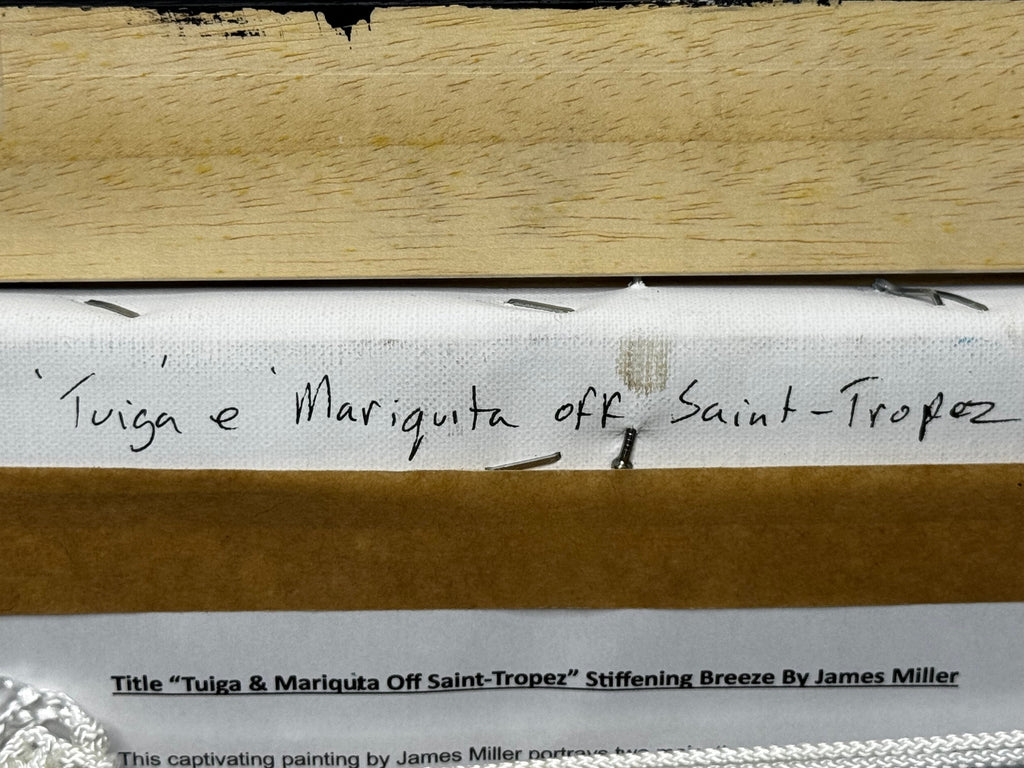 'Tuiga' e 'Mariquita off Saint-Tropez
Title “Tuiga & Mariquta Off Saint-Tropez” Stiffening Breeze By James Miller
This captivating painting by James Miller portrays two